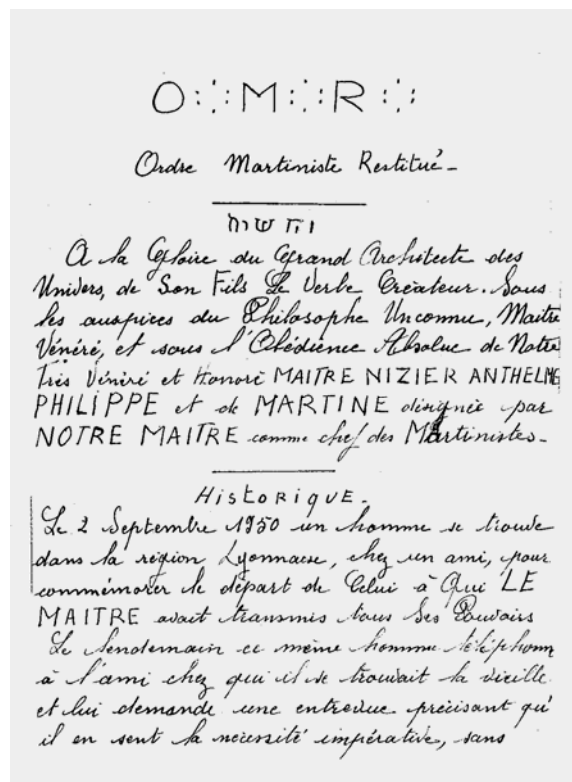 O M R
Ordre Martiniste Restitué_
יהשוה
A la Gloire du Grand Architecte des
Univers, de Son Fils Le Verbe Créateur. Sous
les auspices du Philosophe Unconnu, Maitre
Vénéré, et sous l'Obédience Absolue de Notre
Très Vénéré et Honoré MAITRE NIZIER ANTHELME
PHILIPPE et de MARTINE désignée par
NOTRE MAITRE comme chef des Martinistes_
HistoriqUE_
Le 2 Septembre 1950 un homme se trouve
dans la région Lyonnaise, chez un ami, pour
commémorer le départ de Celui à Qui LE
MAITRE avait transmis tous Ses Pouvoirs
Le lendemain ce même homme téléphonn
à l'ami chez qui il se trouvait la vieille
et lui demande une entrevue précisant qu'
il en sent la nécessité impérative, sans